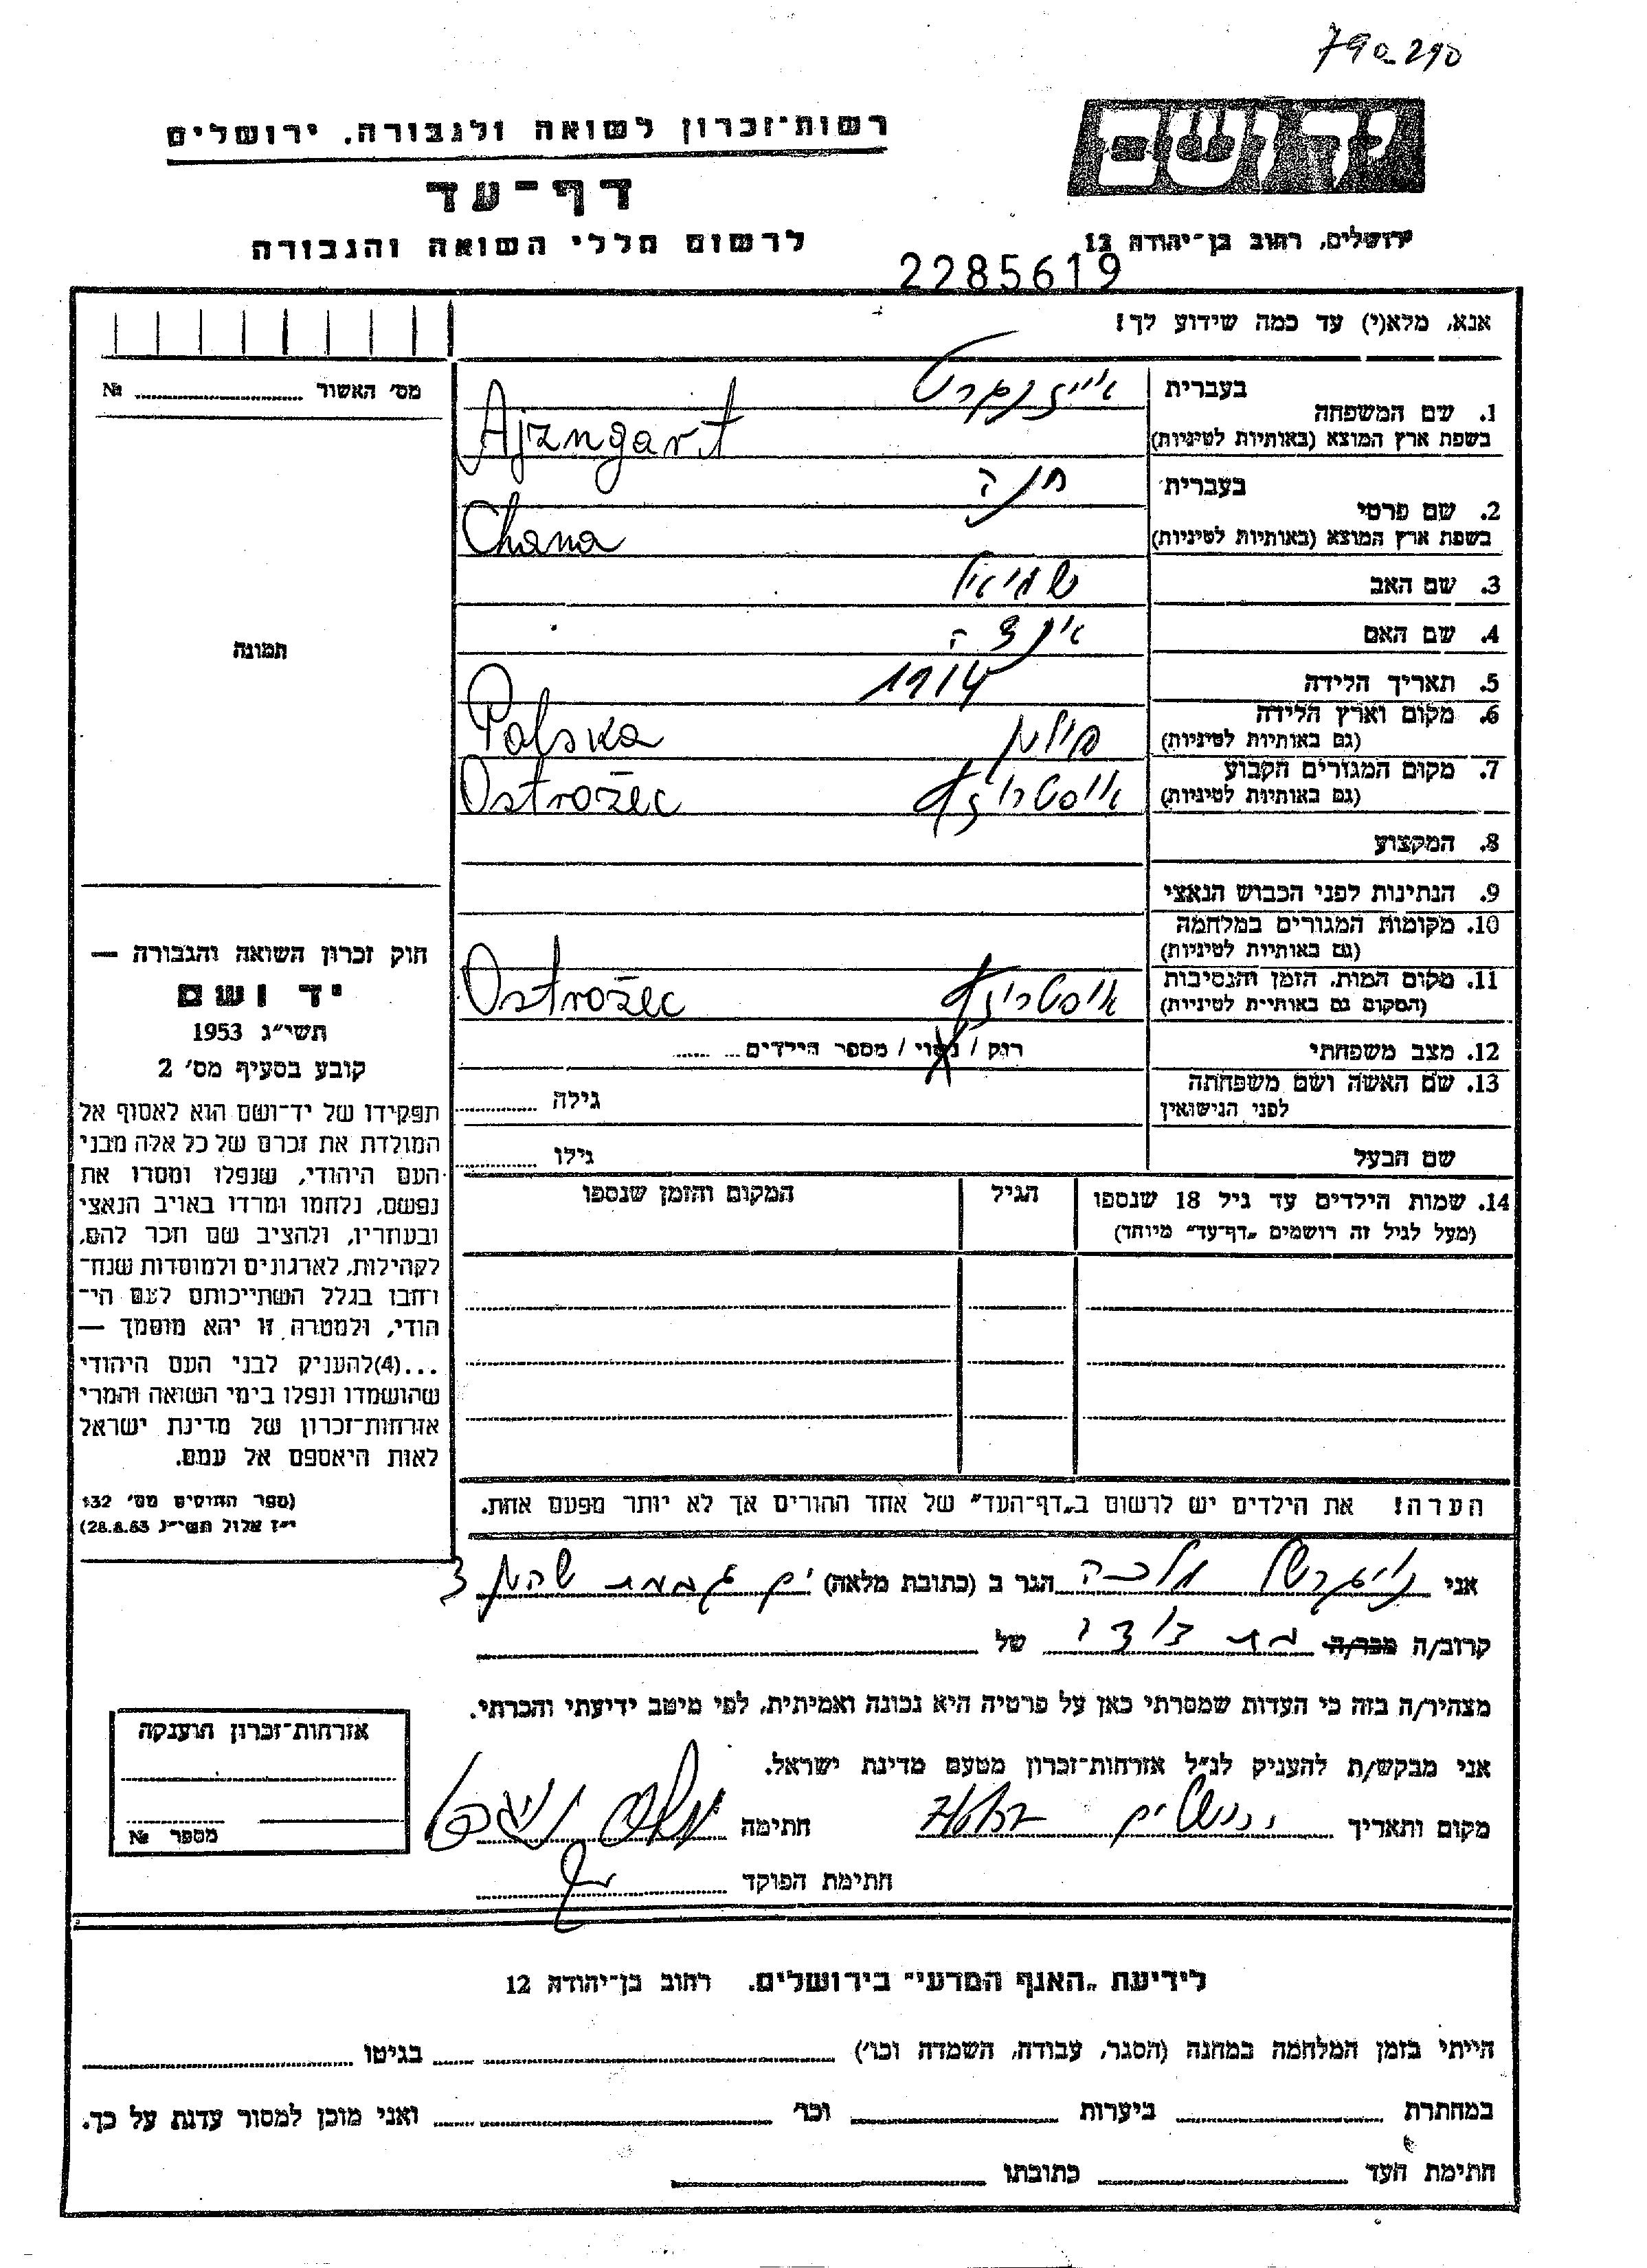 790290
יד ושם
רשות־זכרון לשואה ולגבורה, ירושלים
דף־עד
לרשום חללי השואה והגבורה
ירושלים, רחוב בן־יהודה 12
2285619
אנא, מלא(י) עד כמה שידוע לך!
מס׳ האשור № ..........
תמונה
1. שם המשפחה
בעברית אייזנגרט
בשפת ארץ המוצא (באותיות לטיניות) Ajzngart
2. שם פרטי
בעברית חנה
בשפת ארץ המוצא (באותיות לטיניות) Chana
3. שם האב
4. שם האם
5. תאריך הלידה 1914
6. מקום וארץ הלידה פולין
(גם באותיות לטיניות) Polska
7. מקום המגורים הקבוע אוסטרוזץ
(גם באותיות לטיניות) Ostrožec
8. המקצוע
9. הנתינות לפני הכבוש הנאצי
10. מקומות המגורים במלחמה
(גם באותיות לטיניות)
11. מקום המות, הזמן והנסיבות אוסטרוזץ
(המקום גם באותיות לטיניות) Ostrožec
12. מצב משפחתי רווק / נשוי / מספר הילדים ........
13. שם האשה ושם משפחתה
לפני הנישואין גילה ........
שם הבעל גילו ........
14. שמות הילדים עד גיל 18 שנספו הגיל המקום והזמן שנספו
(מעל לגיל זה רושמים „דף־עד״ מיוחד)
חוק זכרון השואה והגבורה —
יד ושם
תשי״ג 1953
קובע בסעיף מס׳ 2
תפקידו של יד־ושם הוא לאסוף אל
המולדת את זכרם של כל אלה מבני
העם היהודי, שנפלו ומסרו את
נפשם, נלחמו ומרדו באויב הנאצי
ובעוזריו, ולהציב שם וזכר להם,
לקהילות, לארגונים ולמוסדות שנח־
רבו בגלל השתייכותם לעם הי־
הודי, ולמטרה זו יהא מוסמך —
...(4) להעניק לבני העם היהודי
שהושמדו ונפלו בימי השואה והמרי
אזרחות־זכרון של מדינת ישראל
לאות היאספם אל עמם.
(ספר החוקים מס׳ 132
י״ז אלול תשי״ג 28.8.53)
הערה! את הילדים יש לרשום ב„דף־העד״ של אחד ההורים אך לא יותר מפעם אחת.
אני מלכה הגר ב (כתובת מלאה)
קרוב/ה מכר/ה בת דודה של
מצהיר/ה בזה כי העדות שמסרתי כאן על פרטיה היא נכונה ואמיתית, לפי מיטב ידיעתי והכרתי.
אני מבקש/ת להעניק לנ״ל אזרחות־זכרון מטעם מדינת ישראל.
מקום ותאריך ירושלים חתימה
חתימת הפוקד
אזרחות־זכרון הוענקה
מספר №
לידיעת „האגף המדעי״ בירושלים. רחוב בן־יהודה 12
הייתי בזמן המלחמה במחנה (הסגר, עבודה, השמדה וכו׳) ........ בגיטו ........
במחתרת ........ ביערות ........ וכו׳ ........ ואני מוכן למסור עדות על כך.
חתימת העד ........ כתובתו ........